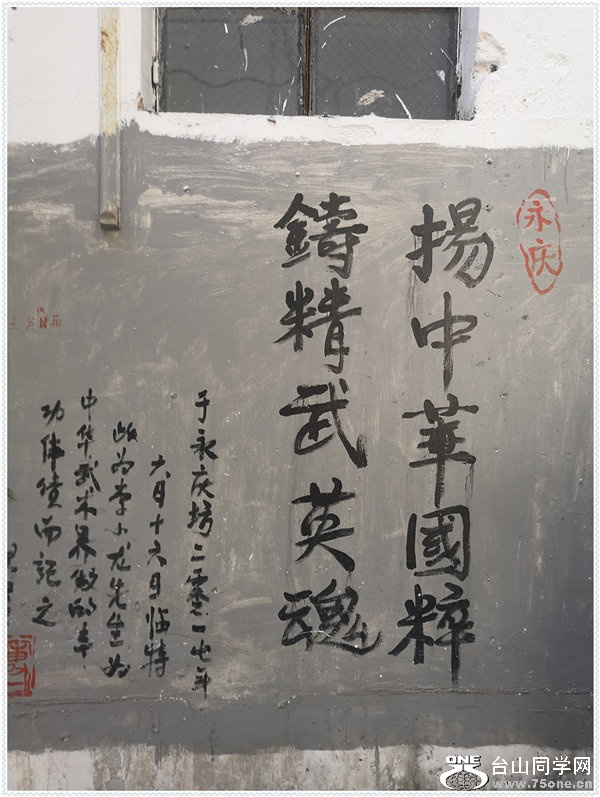 永庆
揚中華國粹
鑄精武英魂
于永庆坊二零一七年
六月十六日临特
此为李小龙先生为
中华武术界做的丰
功伟绩而記之
ONE
台山同学网
www.75one.cn